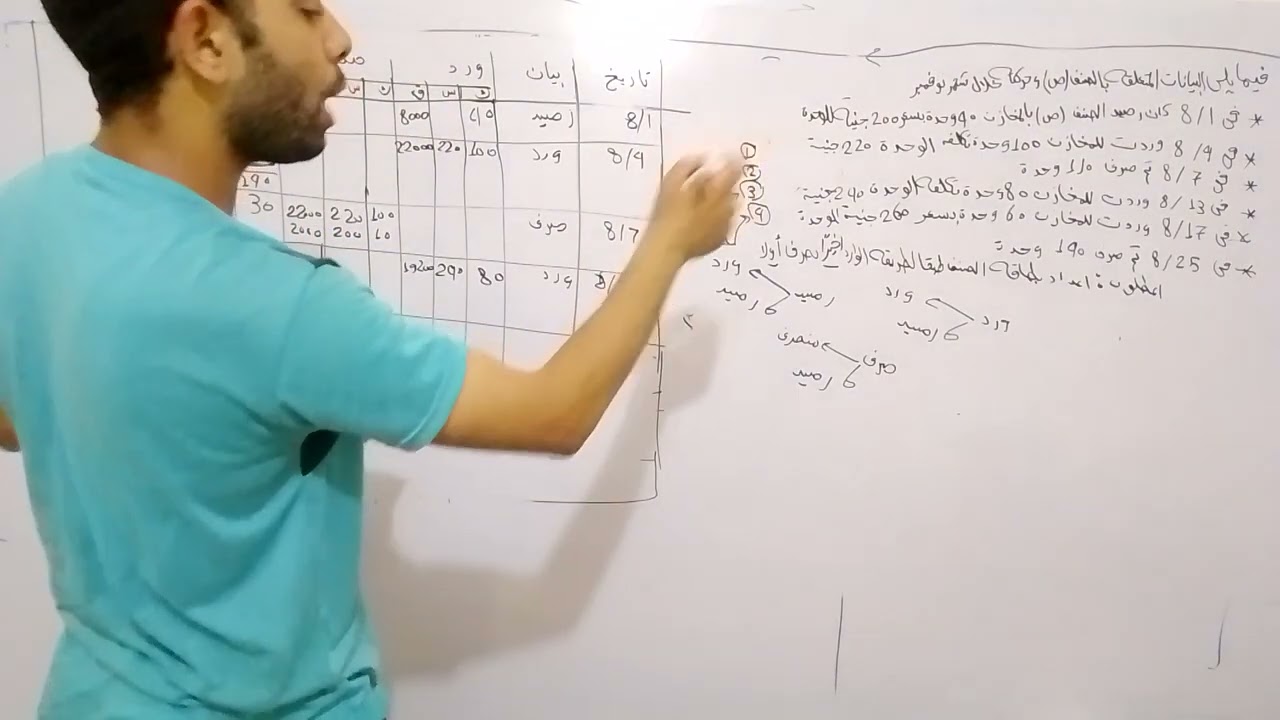 فيما يلي البيانات المتعلقة بالصنف (ص) وحركة خلال شهر نوفمبر
* في 8/1 كان رصيد الصنف (ص) بالمخازن 40 وحدة بسعر 200 جنية للوحدة
* في 8/4 وردت للمخازن 100 وحدة بتكلفه الوحدة 220 جنية
* في 8/7 تم صرف 110 وحدة
* في 8/13 وردت للمخازن 80 وحدة بتكلفة الوحدة 240 جنية
* في 8/17 وردت للمخازن 60 وحدة بسعر 260 جنية للوحدة
* في 8/25 تم صرف 190 وحدة
المطلوب: اعداد بطاقة الصنف طبقا لطريقة الوارد اخيرًا يصرف أولا
1
2
3
4
رصيد
ورد
رصيد
ورد
ورد
رصيد
صرف
منصرف
رصيد
تاريخ بيان ورد
ك س ق ك س
8/1 رصيد 40 8000
8/4 ورد 100 220 22000
8/7 صرف 100 220 2200
10 200 2000
140
30
ورد 80 240 19200